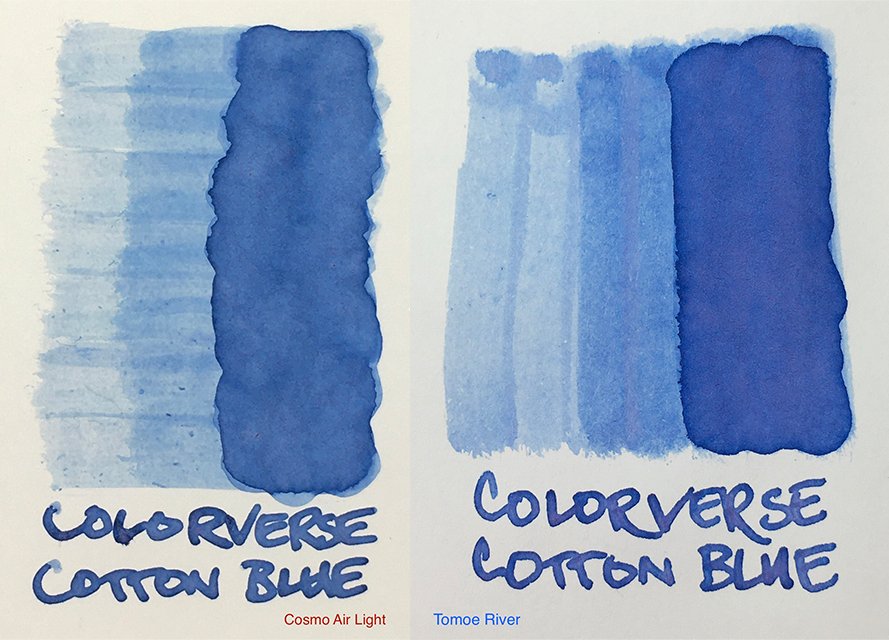 COLORVERSE
COTTON BLUE
Cosmo Air Light
COLORVERSE
COTTON BLUE
Tomoe River